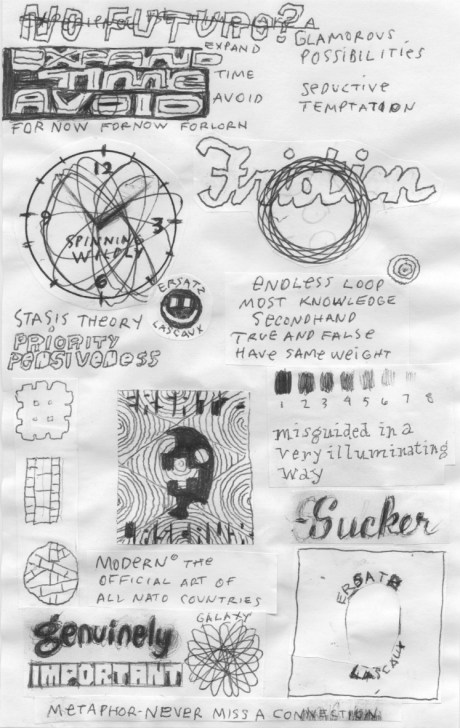 NO FUTURO?
GLAMOROUS
POSSIBILITIES
EXPAND
TIME
AVOID
EXPAND
TIME
AVOID
SEDUCTIVE
TEMPTATION
FOR NOW FORNOW FORLORN
12
3
6
9
SPINNING
WILDLY
Friction
ERSATZ
LASCAUX
ENDLESS LOOP
MOST KNOWLEDGE
SECONDHAND
TRUE AND FALSE
HAVE SAME WEIGHT
STASIS THEORY
PRIORITY
PENSIVENESS
1 2 3 4 5 6 7 8
misguided in a
very illuminating
way
Sucker
MODERN© THE
OFFICIAL ART OF
ALL NATO COUNTRIES
ERSATZ
LASCAUX
genuinely
IMPORTANT
GALAXY
METAPHOR-NEVER MISS A CONNECTION